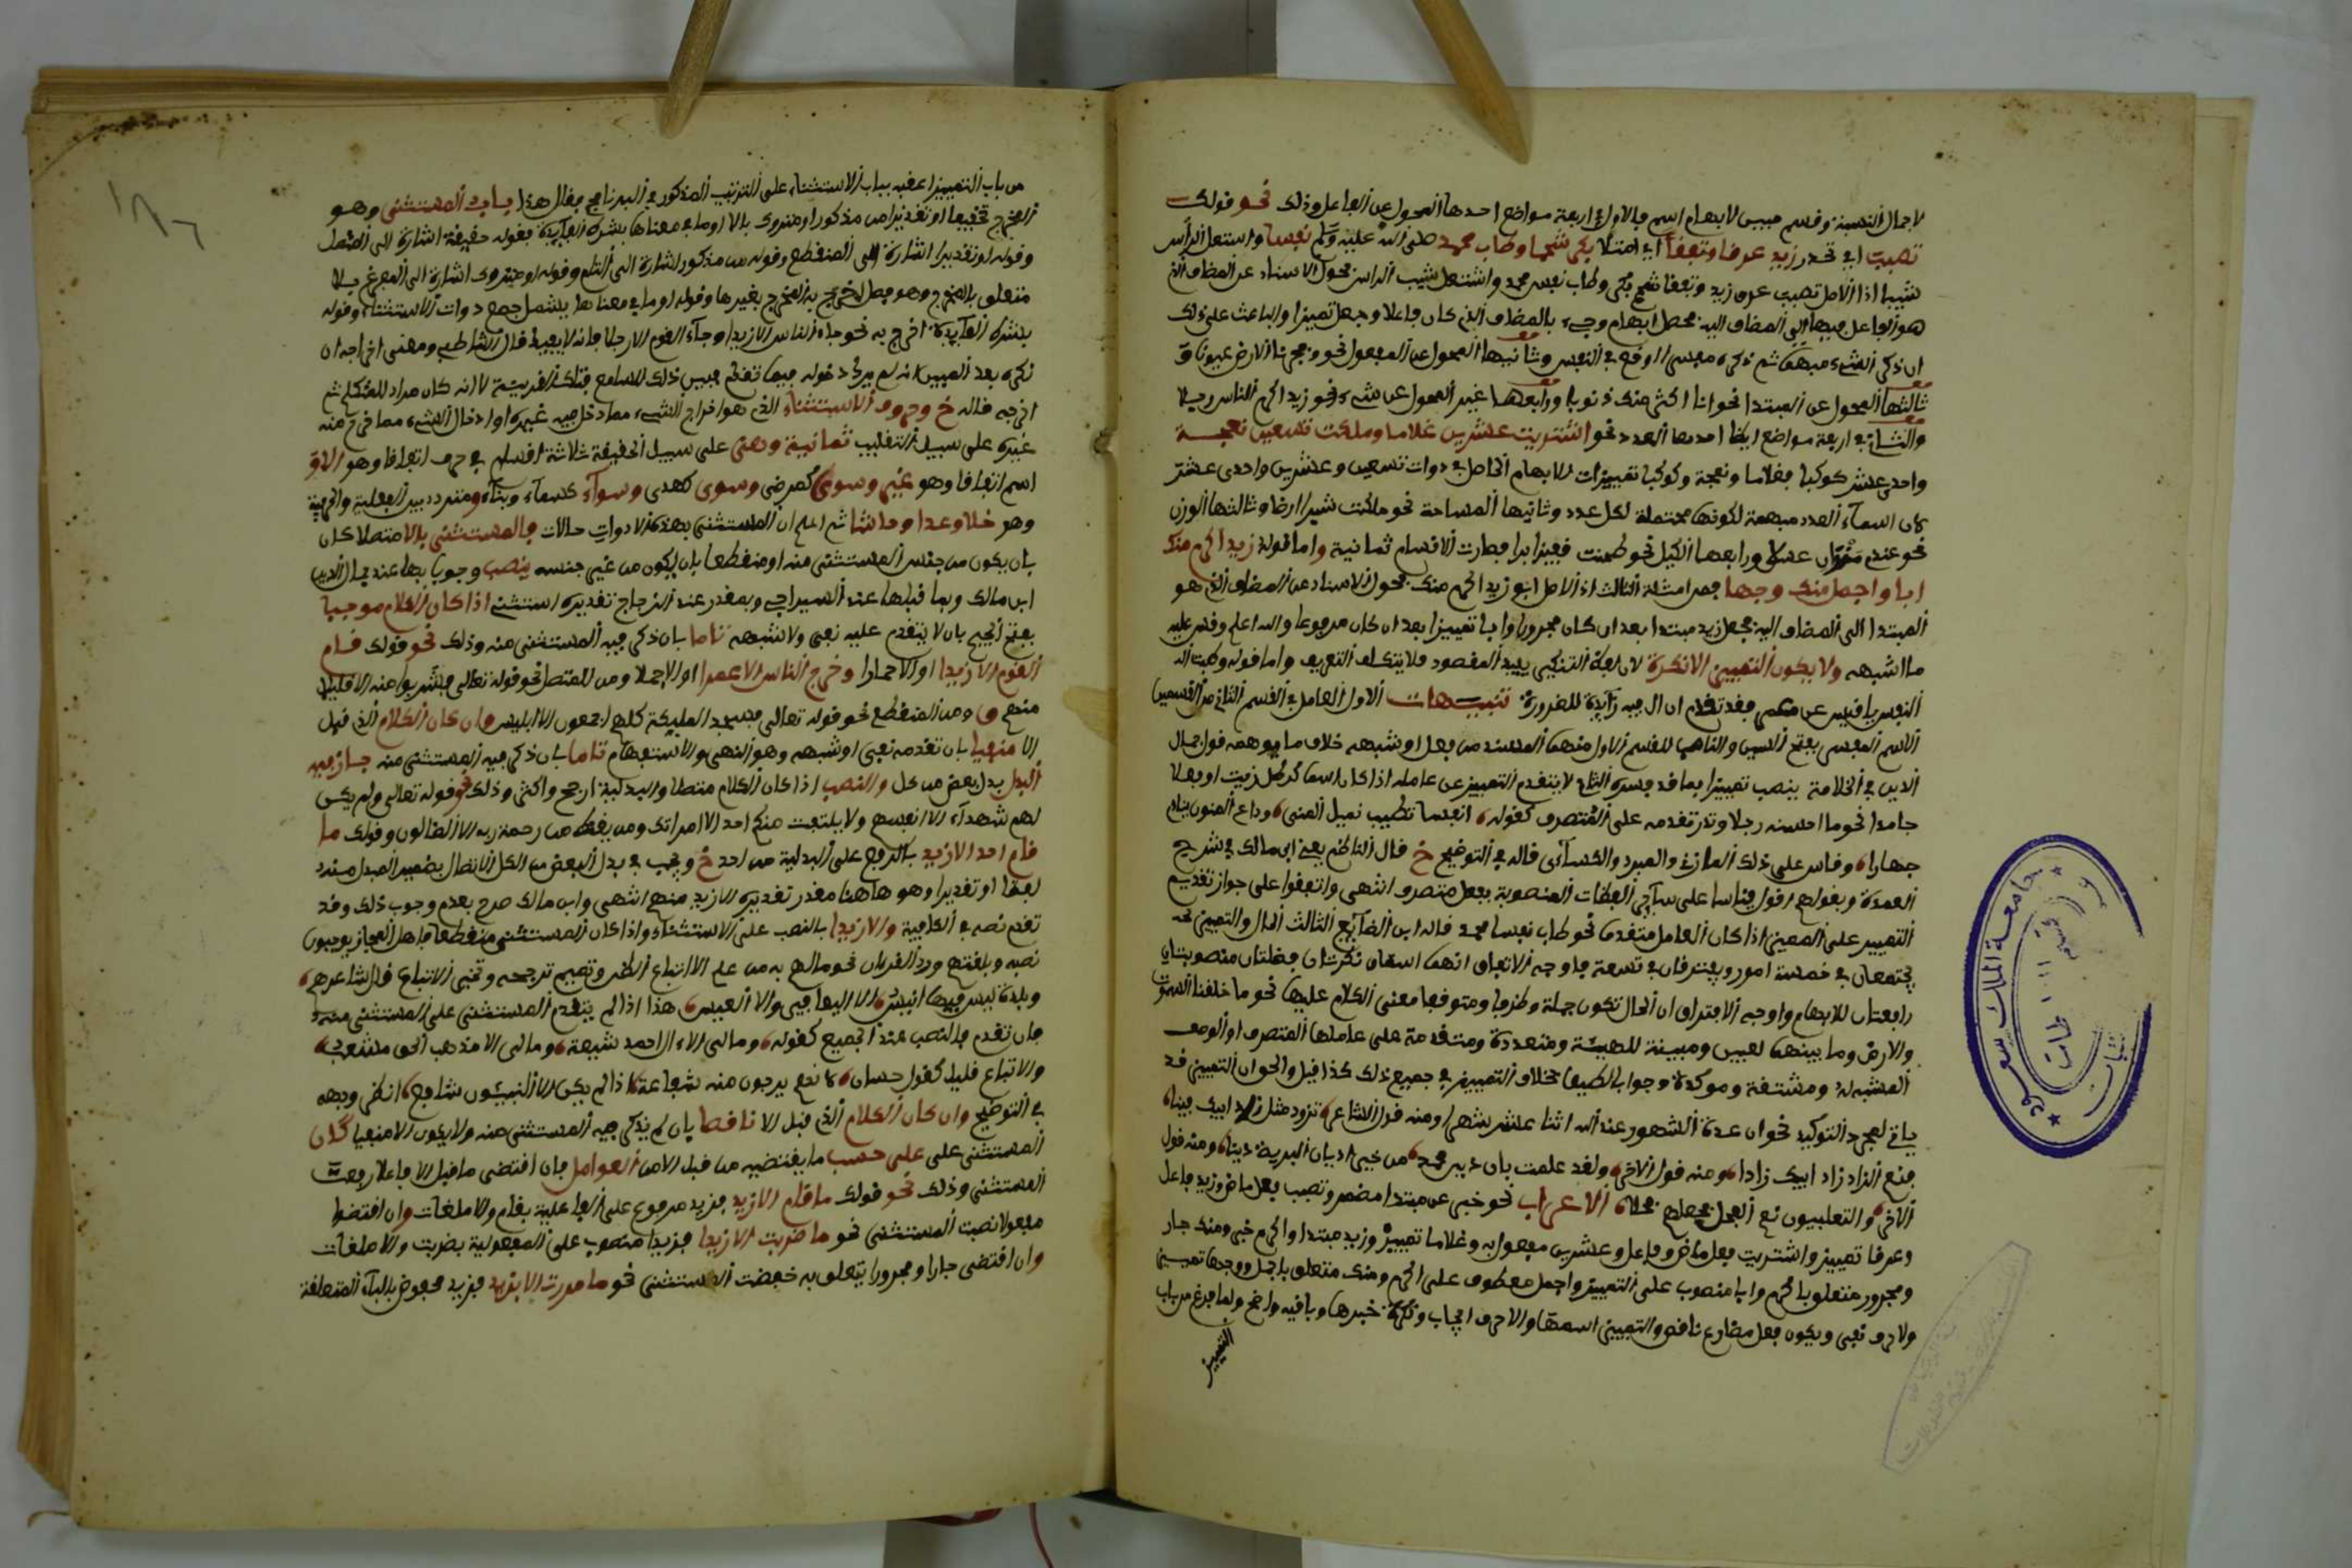 لاجمال النسبة وقسم مبين لابهام اسم فالاول في اربعة مواضع احدها المحول عن الفاعل وذلك نحو قولك
تصبب اي تحدر زيد عرقا وتفقأ اي امتلأ بكر شحما وطاب محمد صلى الله عليه وسلم نفسا واشتعل الرأس
شيبا اذ الاصل تصبب عرق زيد وتفقأ شحم بكر وطاب نفس محمد واشتعل شيب الراس فحول الاسناد عن المضاف الذي
هو الفاعل فيها الى المضاف اليه فحصل ابهام وجيء بالمضاف الذي كان فاعلا وجعل تمييزا والباعث على ذلك
ان ذكر الشيء مبهما ثم ذكره مفسرا اوقع في النفس وثانيها المحول عن المفعول نحو وفجرنا الارض عيونا
ثالثها المحول عن المبتدا نحو انا اكثر منك ورابعها غير المحول عن شيء نحو زيد اكرم الناس رجلا
والثاني في اربعة مواضع ايضا احدها العدد نحو اشتريت عشرين غلاما وملكت تسعين نعجة
واحد عشر كوكبا فغلاما ونعجة وكوكبا تمييزات للابهام الحاصل في ذوات تسعين وعشرين واحدى عشر
لان اسماء العدد مبهمة لكونها محتملة لكل عدد وثانيها المساحة نحو ملكت شبرا ارضا وثالثها الوزن
نحو عندي منوان عسلا ورابعها الكيل نحو طحنت قفيزا برا فصارت الاقسام ثمانية واما قوله زيد اكرم منك
ابا واجمل منك وجها فمن امثلة الثالث اذ الاصل ابو زيد اكرم منك فحول الاسناد عن المضاف الذي هو
المبتدا الى المضاف اليه فجعل زيد مبتدا بعد ان كان مجرورا وابا تمييزا بعد ان كان مرفوعا والله اعلم وقس عليه
ما اشبهه ولا يكون التمييز الا نكرة لان لفظ التنكير يفيد المقصود فلا يتكلف التعريف واما قوله وطبت
النفس يا قيس عن عمرو فقد تقدم ان ال فيه زائدة للضرورة تنبيهات الاول العامل في القسم الثاني من القسمين
الاسم المفسر بفتح السين والناصب للقسم الاول منهما المسند من فعل او شبهه خلاف ما يوهمه قول جمال
الدين في الخلاصة ينصب تمييزا بما قد فسره الثاني لا يتقدم التمييز عن عامله اذا كان اسما كرطل زيت او فعلا
جامدا نحو ما احسنه رجلا وندر تقدمه على المتصرف كقوله انفسا تطيب بنيل المنى وداعي المنون ينادي
جهارا وقاس على ذلك المازني والمبرد والكسائي قاله في التوضيح خ قال الناظم يعني ابن مالك في شرح
العمدة وبقولهم اقول قياسا على سائر الفضلات المنصوبة بفعل متصرف انتهى واتفقوا على جواز تقديم
التمييز على المميز اذا كان العامل متقدما نحو طاب نفسا محمد قاله ابن الضائع الثالث الحال والتمييز
يجتمعان في خمسة امور ويفترقان في تسعة فاوجه الاتفاق انهما اسمان نكرتان فضلتان منصوبتان
رافعتان للابهام واوجه الافتراق ان الحال تكون جملة وظرفا ومتوقفا معنى الكلام عليها نحو ما خلقنا السموات
والارض وما بينهما لعبين ومبينة للهيئة ومتعددة ومتقدمة على عاملها المتصرف او الوصف
المشبه له ومشتقة وموكدة وجوابا لكيف بخلاف التمييز في جميع ذلك كذا قيل والحق ان التمييز قد
ياتي لمجرد التوكيد نحو ان عدة الشهور عند الله اثنا عشر شهرا ومنه قول الشاعر تزود مثل زاد ابيك فينا
فنعم الزاد زاد ابيك زادا ومنه قول الاخر ولقد علمت بان دين محمد من خير اديان البرية دينا ومنه قول
الاخر والتغلبيون نعم الفحل فحلهم فحلا الاعراب نحو خبر عن مبتدا مضمر وتصبب فعل ماض وزيد فاعل
وعرقا تمييز واشتريت فعل ماض وفاعل وعشرين مفعول به وغلاما تمييز وزيد مبتدا واكرم خبر ومنك جار
ومجرور متعلق باكرم وابا منصوب على التمييز واجمل معطوف على اكرم ومنك متعلق باجمل ووجها تمييز
ولا حرف نفي ويكون فعل مضارع ناقص والتمييز اسمها والا حرف ايجاب ونكرة خبرها وباقيه واضح ولما فرغ من باب
التمييز
١٨٦
من باب التمييز اعقبه بباب الاستثناء على الترتيب المذكور في البرنامج فقال هذا باب المستثنى وهو
المخرج تحقيقا او تقديرا من مذكور او متروك بالا او ما في معناها بشرط الفايدة فقوله حقيقة اشارة الى المتصل
وقوله او تقديرا اشارة الى المنقطع وقوله من مذكور اشارة الى التام وقوله او متروك اشارة الى المفرغ بالا
متعلق بالمخرج وهو فصل اخرج به المخرج بغيرها وقوله او ما في معناها ليشمل جميع دوات الاستثناء وقوله
بشرط الفايدة اخرج به نحو جاء الناس الا زيدا وجاء القوم الا رجلا فانه لا يفيد قال الشاطبي ومعنى اخراجه ان
ذكره بعد المبين انه لم يرد دخوله فيما تقدم فبين ذلك للسامع بتلك القرينة لا انه كان مرادا للمتكلم ثم
اخرجه قاله خ وحروف الاستثناء الذي هو اخراج الشيء مما دخل فيه غيره او ادخال الشيء مما خرج منه
غيره على سبيل التغليب ثمانية وهي على سبيل الحقيقة ثلاثة اقسام حرف اتفاقا وهو الا و
اسم اتفاقا وهو غير وسوى كرضى وسوى كهدى وسواء كسماء وبناء ومتردد بين الفعلية والحرفية
وهو خلا وعدا وحاشا ثم اعلم ان المستثنى بهذه الادوات حالات فالمستثنى بالا متصلا كان
بان يكون من جنس المستثنى منه او منقطعا بان يكون من غير جنسه ينصب وجوبا بها عند جمال الدين
ابن مالك وبما قبلها عند السيرافي وبمقدر عند الزجاج تقديره استثني اذا كان الكلام موجبا
بفتح الجيم بان لا يتقدم عليه نفي ولا شبهه تاما بان ذكر فيه المستثنى منه وذلك نحو قولك قام
القوم الا زيدا او الا حمارا وخرج الناس الا عمرا او الا جملا ومن المتصل نحو قوله تعالى فشربوا منه الا قليلا
منهم ومن المنقطع نحو قوله تعالى فسجد المليكة كلهم اجمعون الا ابليس وان كان الكلام الذي قبل
الا منفيا بان تقدمه نفي او شبهه وهو النهي والاستفهام تاما بان ذكر فيه المستثنى منه جاز فيه
البدل بدل بعض من كل والنصب اذا كان الكلام متصلا والبدلية ارجح واكثر وذلك نحو قوله تعالى ولم يكن
لهم شهداء الا انفسهم ولا يلتفت منكم احد الا امراتك ومن يقنط من رحمة ربه الا الضالون وقولك ما
قام احد الا زيد بالرفع على البدلية من احد خ ويجب في بدل البعض من الكل الاتصال بضمير المبدل منه
لفظا او تقديرا وهو هاهنا مقدر تقديره الا زيد منهم انتهى وابن مالك صرح بعدم وجوب ذلك وقد
تقدم نصه في الكافية والا زيدا بالنصب على الاستثناء واذا كان المستثنى منقطعا فاهل الحجاز يوجبون
نصبه وبلغتهم ورد القرءان نحو مالهم به من علم الا اتباع الظن وتميم ترجحه وتجيز الاتباع قال شاعرهم
وبلدة ليس فيها انيس الا اليعافير والا العيس هذا اذا لم يتقدم المستثنى على المستثنى منه
فان تقدم فالنصب عند الجميع كقوله وما لي الا ءال احمد شيعة وما لي الا مذهب الحق مشعب
والاتباع قليل كقول حسان لانهم يرجون منه شفاعة اذا لم يكن الا النبيئون شافع انظر وجهه
في التوضيح وان كان الكلام الذي قبل الا ناقصا بان لم يذكر فيه المستثنى منه ولا يكون الا منفيا كان
المستثنى على على حسب ما يقتضيه من قبل الا من العوامل فان اقتضى ما قبل الا فاعلا رفعت
المستثنى وذلك نحو قولك ما قام الا زيد فزيد مرفوع على الفاعلية بقام والا ملغات وان اقتضى
مفعولا نصبت المستثنى نحو ما ضربت الا زيدا فزيدا منصوب على المفعولية بضربت والا ملغات
وان اقتضى جارا ومجرورا يتعلق به خفضت المستثنى نحو ما مررت الا بزيد فزيد مخفوض بالباء المتعلقة
جامعة الملك سعود